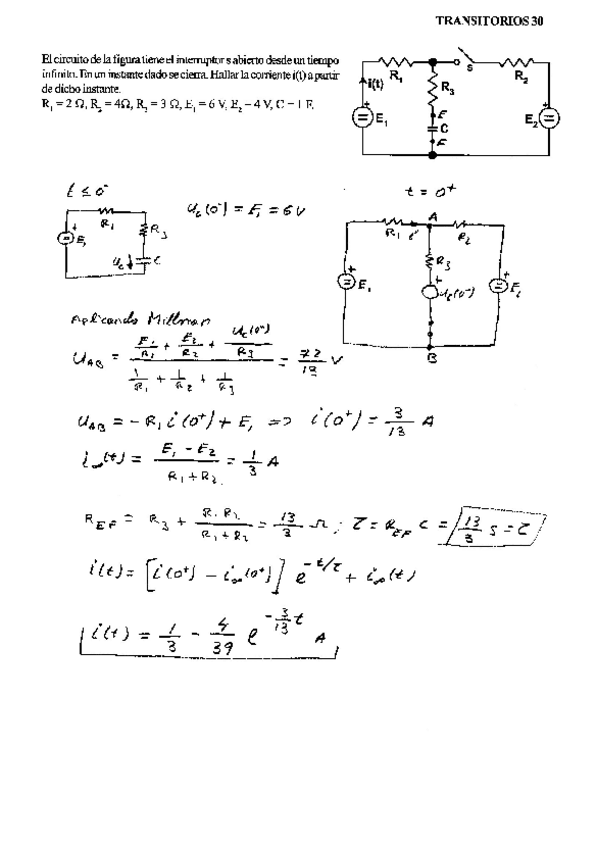 TRANSITORIOS 30
El circuito de la figura tiene el interruptor s abierto desde un tiempo
infinito. En un instante dado se cierra. Hallar la corriente i(t) a partir
de dicho instante.
R₁ = 2 Ω, R₂ = 4Ω, R₃ = 3 Ω, E₁ = 6 V, E₂ = 4 V, C = 1 F.
R₁ S R₂
i(t) R₃
+ E₁ E C F E₂ +
t ≤ 0⁻ u_c(0⁻) = E₁ = 6V t = 0⁺
R₁ R₃ + E₁ u_c C
A R₁ i R₂
R₃ + E₁ + u_c(0⁻) +
B
Aplicando Millman
U_AB = (E₁/R₁ + E₂/R₂ + u_c(0⁻)/R₃) / (1/R₁ + 1/R₂ + 1/R₃) = 72/13 V
U_AB = -R₁ i(0⁺) + E₁ => i(0⁺) = 3/13 A
i∞(t) = (E₁ - E₂)/(R₁ + R₂) = 1/3 A
R_EF = R₃ + (R₁ R₂)/(R₁ + R₂) = 13/3 Ω ; τ = R_EF C = 13/3 s = τ
i(t) = [i(0⁺) - i∞(0⁺)] e^(-t/τ) + i∞(t)
i(t) = 1/3 - 4/39 e^(-3/13 t) A